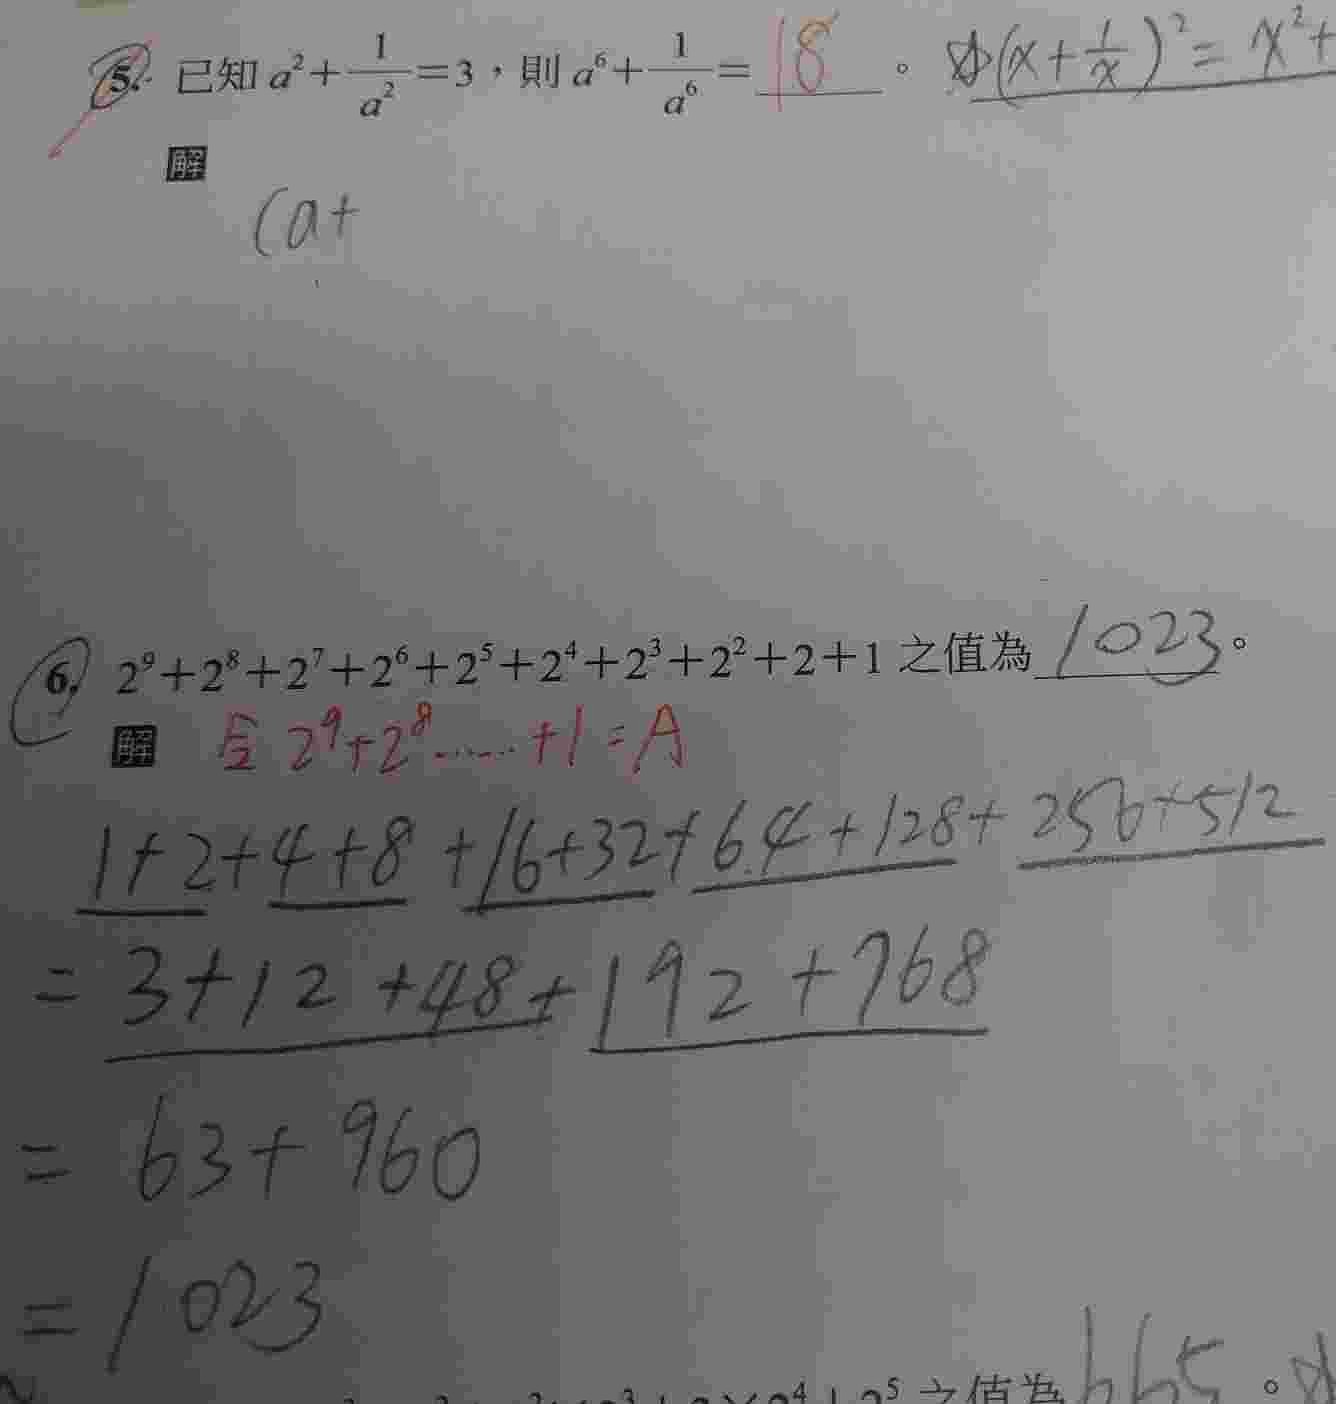 5. 已知 a² + 1/a² = 3，則 a⁶ + 1/a⁶ = 18 。 (x + 1/x)² = x² +
解
(a +
6. 2⁹+2⁸+2⁷+2⁶+2⁵+2⁴+2³+2²+2+1 之值為 1023。
解 令 2⁹+2⁸……+1=A
1+2+4+8+16+32+64+128+256+512
= 3+12+48+192+768
= 63+960
= 1023
2⁵ 之值為 665 。